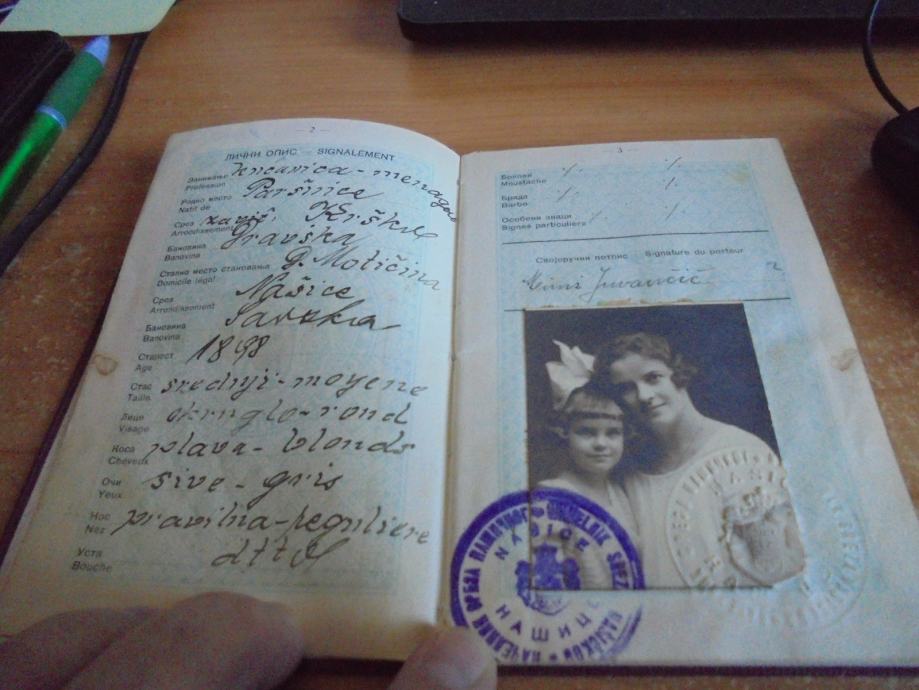 - 2 -
ЛИЧНИ ОПИС — SIGNALEMENT
Занимање
Profession
kućanica - menager
Родно место
Natif de
Paršnice
Срез
Arrondissement
Krško
Бановина
Banovina
Dravska
Стално место становања
Domicile légal
D. Motičina
Срез
Arrondissement
Našice
Бановина
Banovina
Savska
Старост
Age
1898
Стас
Taille
srednji - moyene
Лице
Visage
okruglo - rond
Коса
Cheveux
plava - blonds
Очи
Yeux
sive - gris
Нос
Nez
pravilna - reguliere
Уста
Bouche
dtto
- 3 -
Бркови
Moustache
Брада
Barbe
Особени знаци
Signes particuliers
Својеручни потпис Signature du porteur
Mimi Juvančić
NAŠICE
НАШИЦЕ